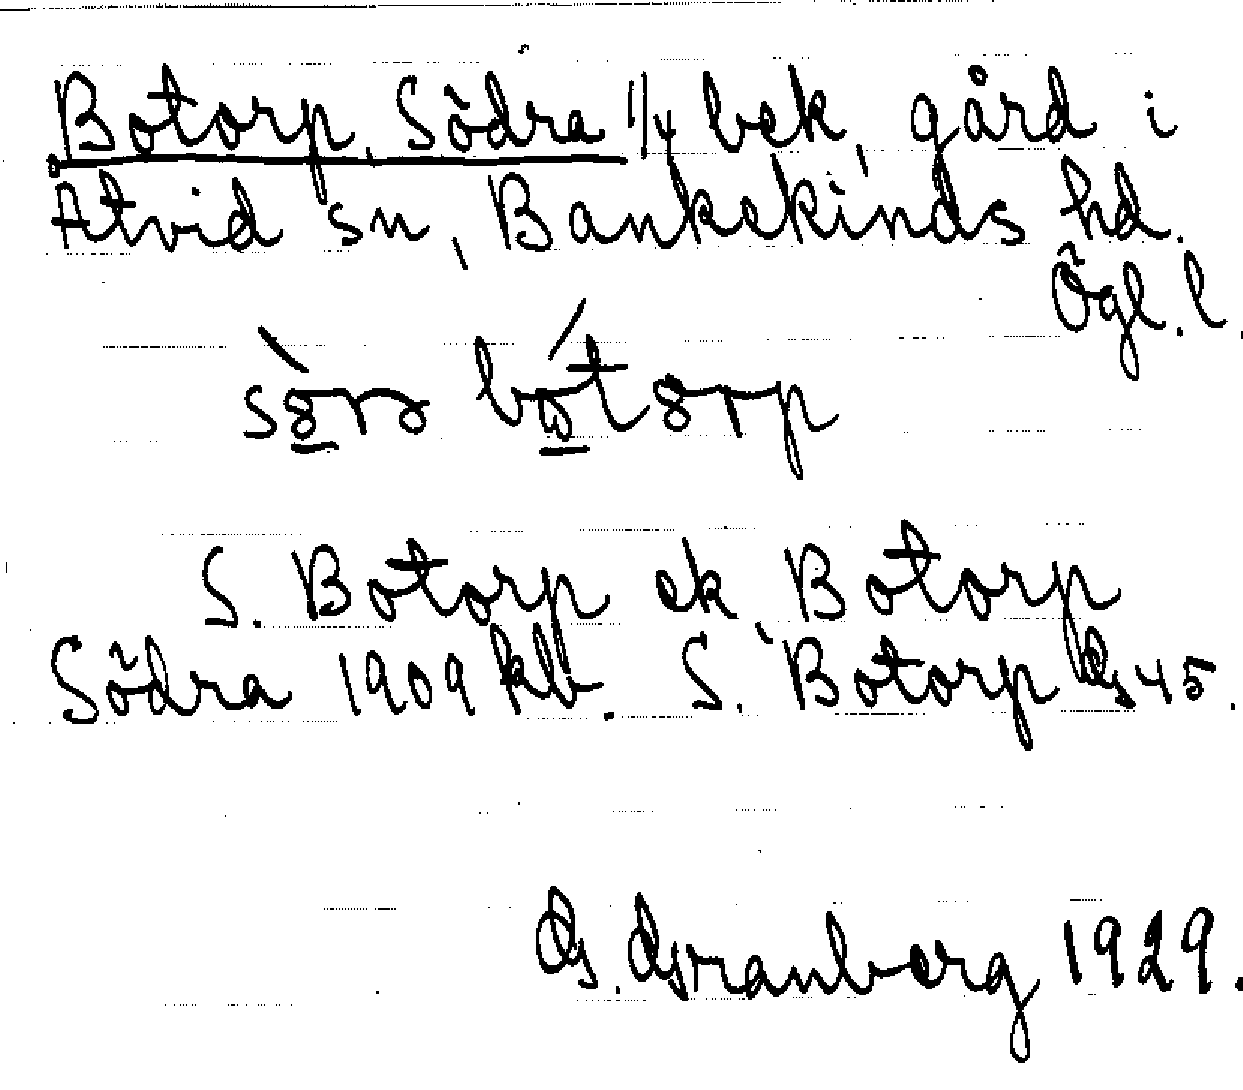 Botorp, Södra 1/4 bek, gård i
Åtvid sn, Bankekinds hd.
Ögl. l.
S. Botorp ek, Botorp
Södra 1909 kb. S. Botorp Gs 45.
G. Granberg 1929.